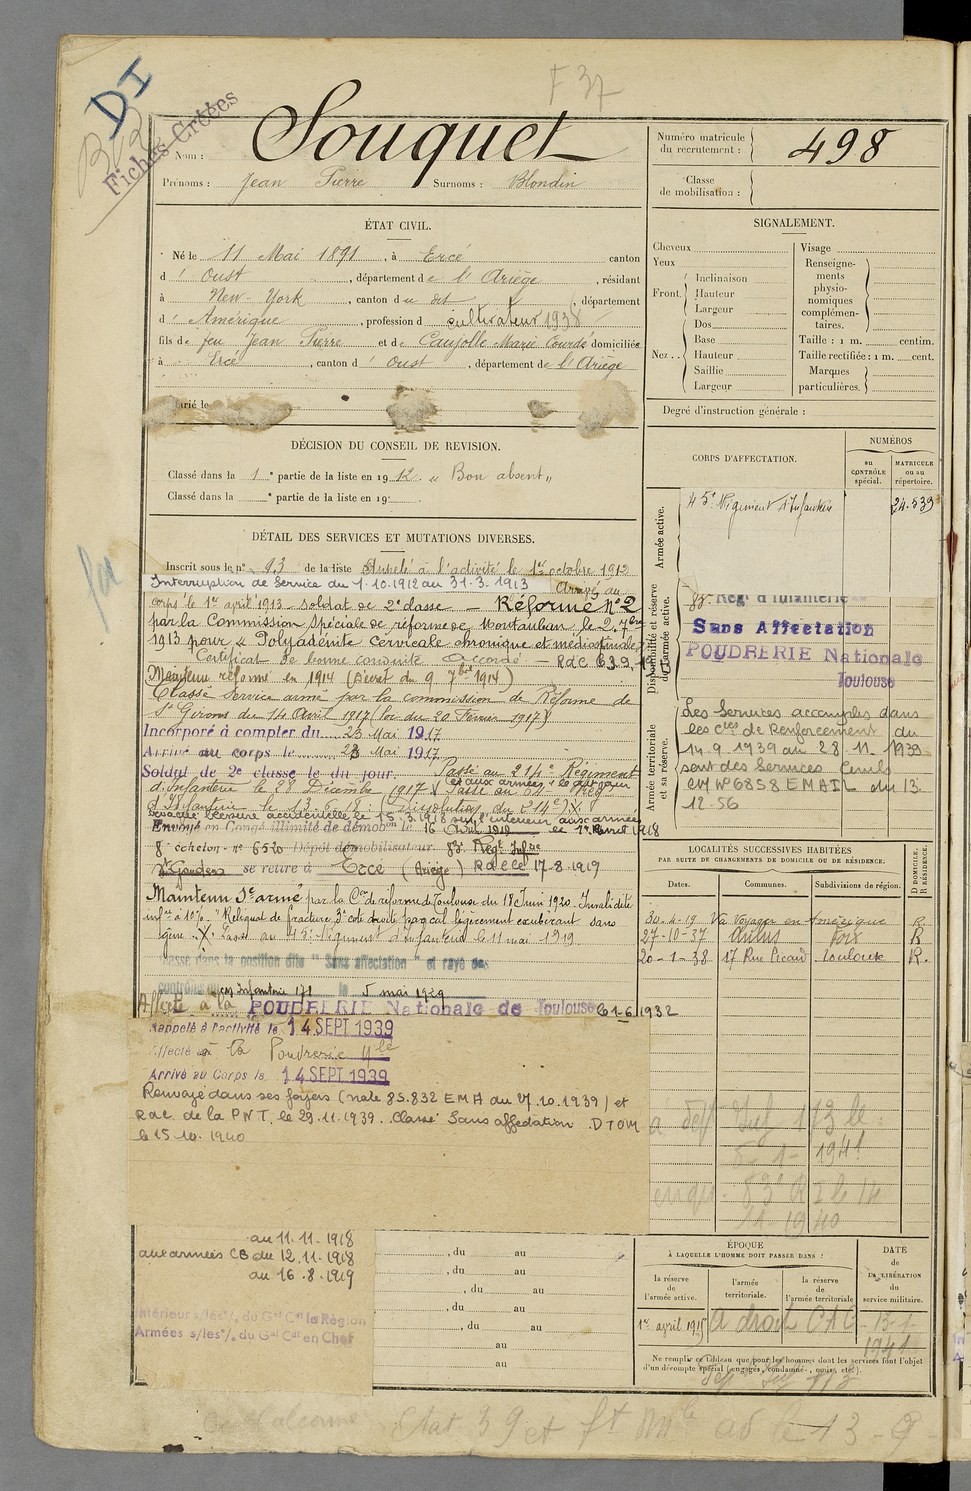 F 37
DI
Fiches Créées
Nom : Souquet
Prénoms : Jean Pierre Surnoms : Blondin
Numéro matricule du recrutement : 498
Classe de mobilisation :
ÉTAT CIVIL.
Né le 11 Mai 1891, à Ercé canton
d' Oust, département de l'Ariège, résidant
à New-York, canton du dit, département
d' Amérique, profession d cultivateur 1938
fils de feu Jean Pierre et de Caujolle Marie Courdé domiciliés
à Ercé, canton d' Oust, département de l'Ariège
Marié le
DÉCISION DU CONSEIL DE REVISION.
Classé dans la 1e partie de la liste en 1912. « Bon absent »
Classé dans la e partie de la liste en 19
DÉTAIL DES SERVICES ET MUTATIONS DIVERSES.
Inscrit sous le n° 93 de la liste Appelé à l'activité le 1er octobre 1912
Interruption de Service du 1.10.1912 au 31.3.1913 Arrivé au
corps le 1er avril 1913 - soldat de 2e classe - Réformé N°2
par la Commission spéciale de réforme de Montauban le 2 7bre
1913 pour « Polyadénite cervicale chronique et médiastinale »
Certificat de bonne conduite Accordé - RdC 639
Maintenu réformé en 1914 (Décret du 9 7bre 1914)
Classé Service armé par la commission de Réforme de
St Girons du 14 Avril 1917 (loi du 20 Février 1917)
Incorporé à compter du 23 Mai 1917
Arrivé au corps le 23 Mai 1917
Soldat de 2e classe le dit jour. Passé au 214e Régiment
d'Infanterie le 28 Décembre 1917 et aux armées le dit jour Passé au
d'Infanterie le 13.6.18 : Dissolution du 214e) X
évacué blessure accidentelle le 15.3.1918 sur l'intérieur aux armées
Envoyé en Congé illimité de démobon le 16 Août 1919 le 1er Avril 1918
8e échelon - n° 6520 Dépôt démobilisateur 83e Régt Infie
se retire à Ercé (Ariège) RdeCé 17-8-1919
Maintenu Sce armé par la Con de réforme de Toulouse du 18 Juin 1920 - Invalidité
infre à 10% - "Reliquat de fracture 3e côte droite par cal légèrement exubérant sans
gêne". X. Passé au 45e Régiment d'Infanterie le 11 mai 1919
Classé dans la position dite "Sans affectation" et rayé des
contrôles du Infanterie 171 le 5 mai 1929
Affecté à la POUDRERIE Nationale de Toulouse 1-6-1932
Rappelé à l'activité le 14 SEPT 1939
Affecté à la Poudrerie Nle
Arrivé au Corps le 14 SEPT 1939
Renvoyé dans ses foyers (note 85.832 EMA du 27.10.1939) et
RdC de la PNT. le 29.11.1939. Classé Sans affectation DTOM
le 15.10.1940
au 11.11.1918
aux armées CB du 12.11.1918
au 16.8.1919
Intérieur s/les o/. du Gal Cdt la Région
Armées s/les o/. du Gal Cdt en Chef
, du au
, du au
, du au
, du au
, du au
au
au
SIGNALEMENT.
Cheveux
Yeux
Front. Inclinaison
Hauteur
Largeur
Nez. Dos
Base
Hauteur
Saillie
Largeur
Visage
Renseignements physionomiques complémentaires.
Taille : 1 m. centim.
Taille rectifiée : 1 m. cent.
Marques particulières.
Degré d'instruction générale :
CORPS D'AFFECTATION.
NUMÉROS
au CONTRÔLE spécial.
MATRICULE ou au répertoire.
Armée active.
45e Régiment d'Infanterie 24.539
Disponibilité et réserve de l'armée active.
83e Rég. d'Infanterie
Sans Affectation
POUDRERIE Nationale
Toulouse
Armée territoriale et sa réserve.
Les Services accomplis dans
les cies de Renforcement du
14.9.1939 au 28.11.1939
sont des Services Civils
CM N° 6858 EMA/L du 13.
12.56
LOCALITÉS SUCCESSIVES HABITÉES
PAR SUITE DE CHANGEMENTS DE DOMICILE OU DE RÉSIDENCE.
Dates. Communes. Subdivisions de région. D DOMICILE. R RÉSIDENCE.
30-4-19 Va voyager en Amérique R
27-10-37 Aulus Foix R
20-1-38 17 Rue Ricaud Toulouse R.
1941
le 14
11-1940
ÉPOQUE
À LAQUELLE L'HOMME DOIT PASSER DANS :
la réserve de l'armée active.
l'armée territoriale.
la réserve de l'armée territoriale
DATE de LA LIBÉRATION du service militaire.
1er avril 1915 A droit CAC 13-1-1941
Ne remplir ce tableau que pour les hommes dont les services font l'objet
d'un décompte spécial (engagés, condamnés, omis, etc.).